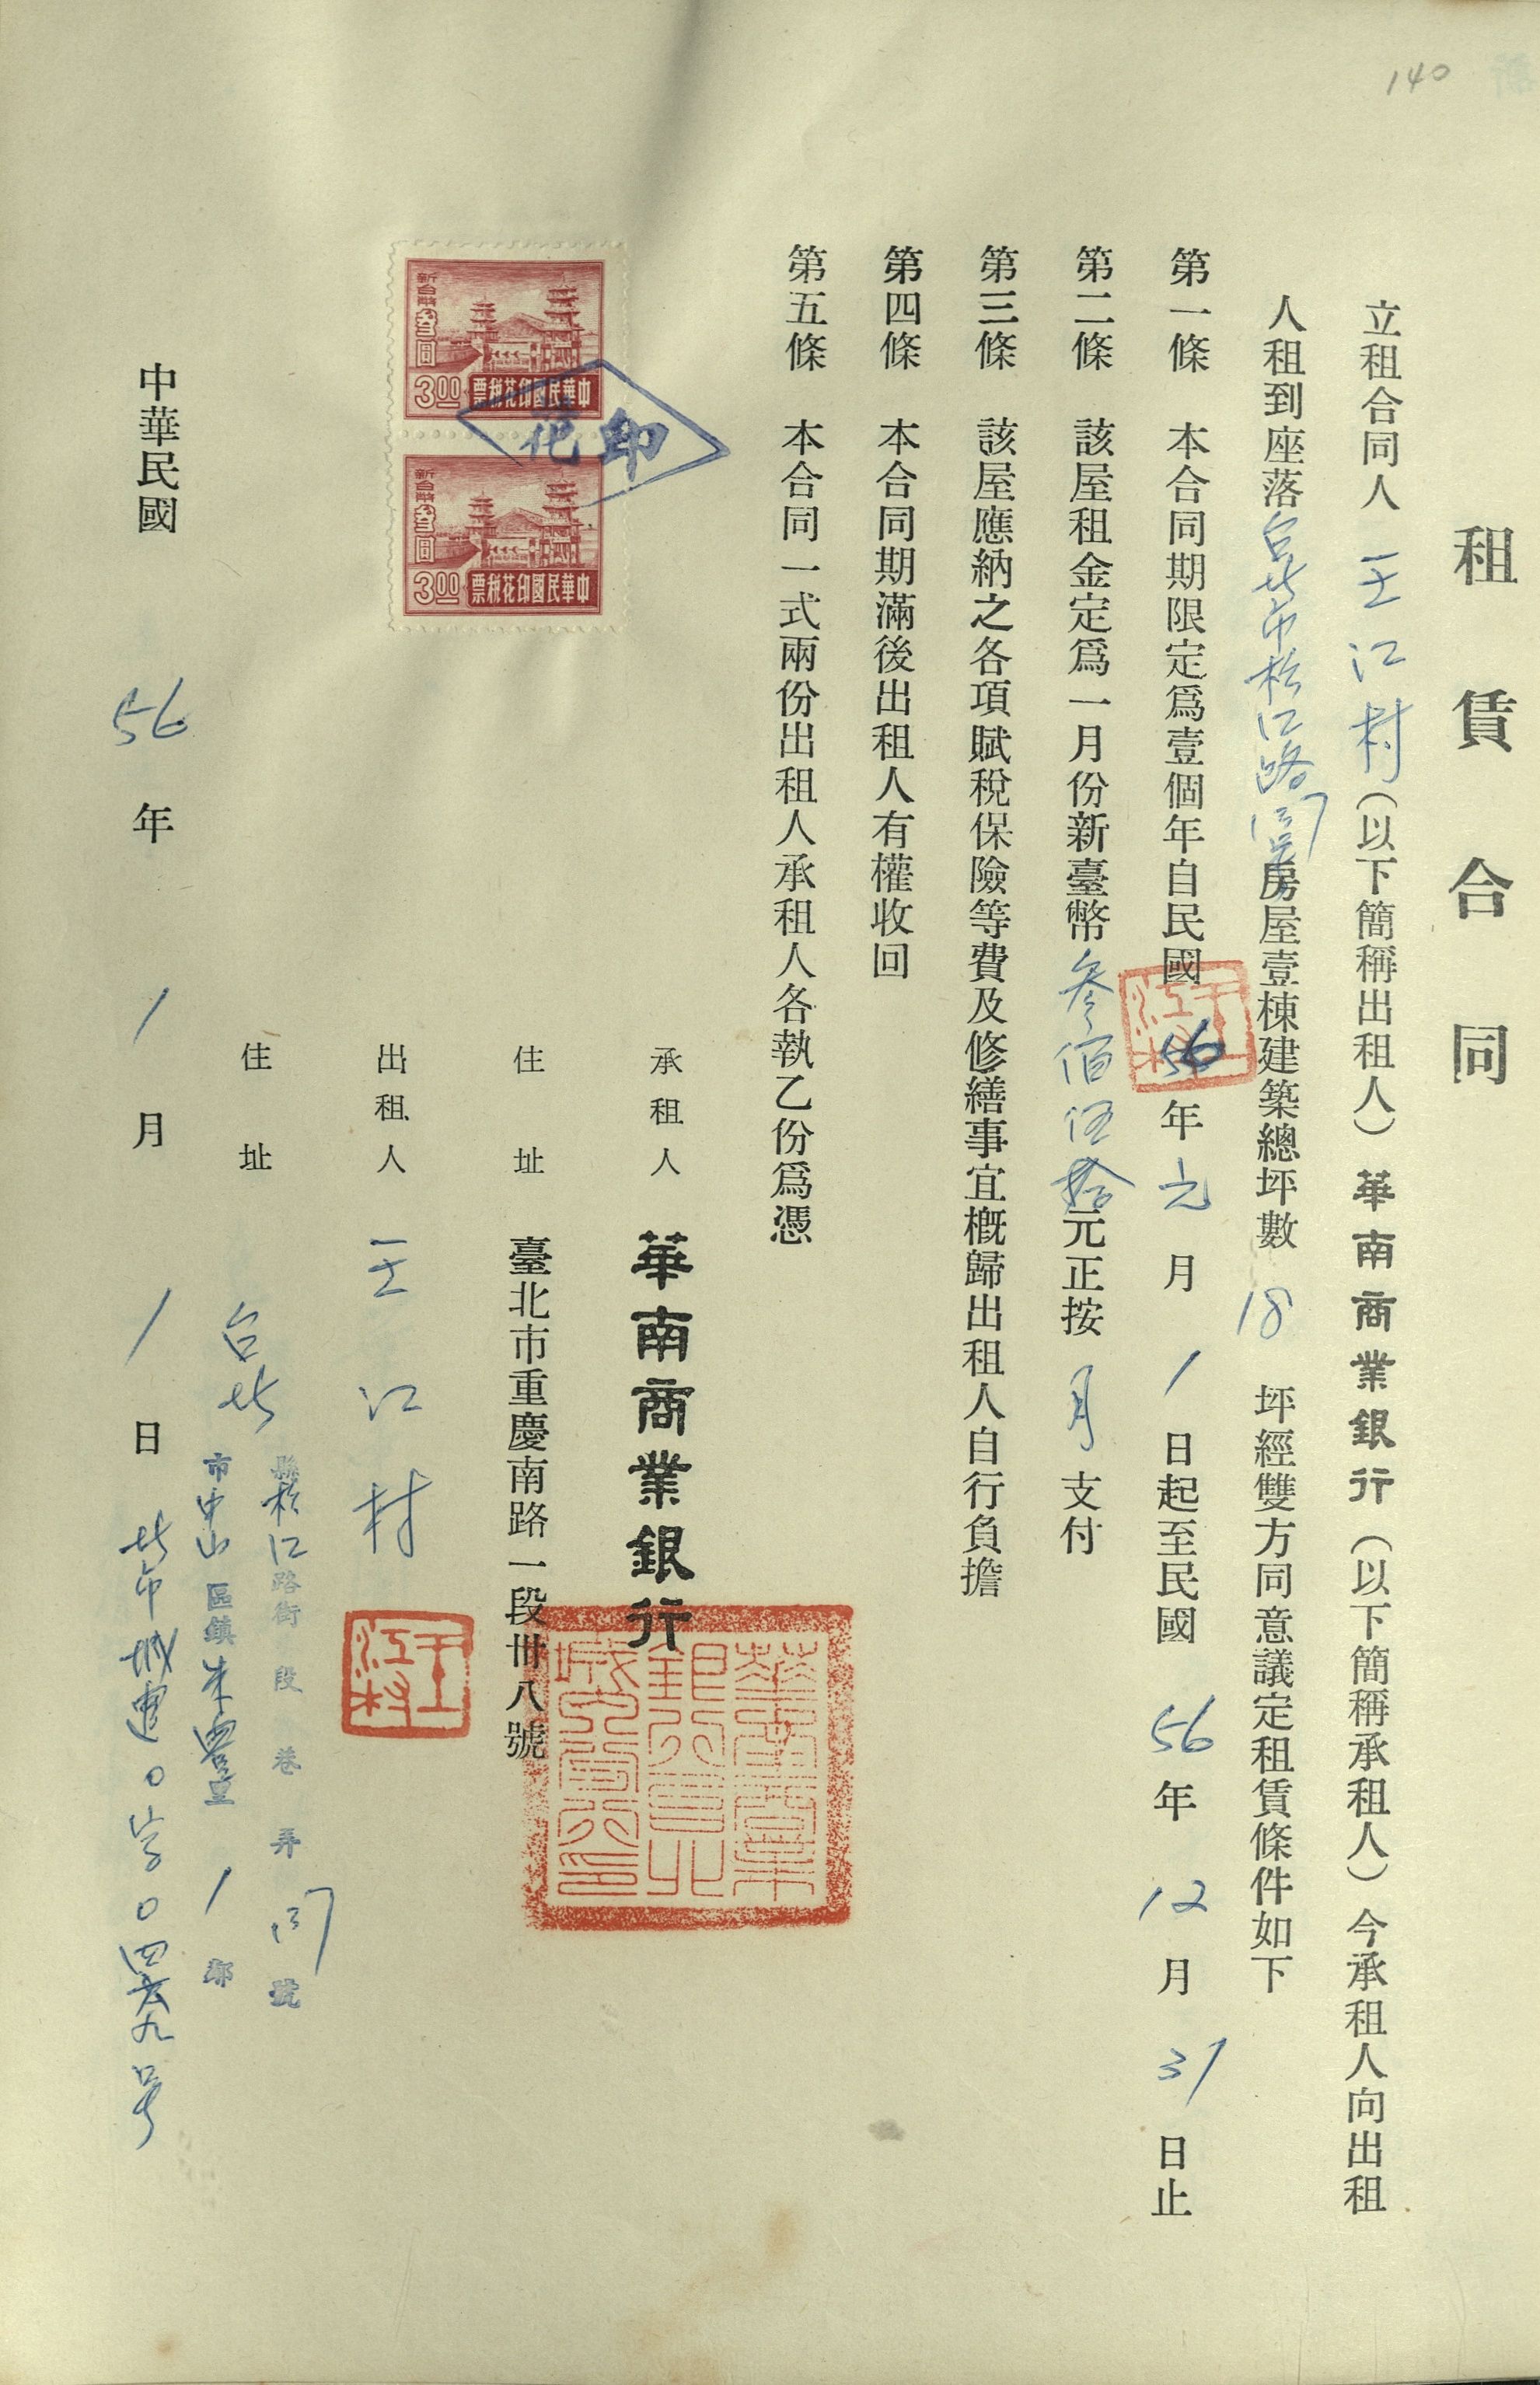 140
租賃合同
立租合同人王江村（以下簡稱出租人）華南商業銀行（以下簡稱承租人）今承租人向出租
人租到座落台北市松江路房屋壹棟建築總坪數18坪經雙方同意議定租賃條件如下
第一條 本合同期限定爲壹個年自民國56年元月1日起至民國56年12月31日止
第二條 該屋租金定爲一月份新臺幣叁佰伍拾元正按月支付
第三條 該屋應納之各項賦稅保險等費及修繕事宜概歸出租人自行負擔
第四條 本合同期滿後出租人有權收回
第五條 本合同一式兩份出租人承租人各執乙份爲憑
新台幣叁圓
3.00
中華民國印花稅票
新台幣叁圓
3.00
中華民國印花稅票
印花
承租人 華南商業銀行
住址 臺北市重慶南路一段卅八號
出租人 王江村
王江村
住址 台北縣市松江路街 段 巷 弄 號
中山區鎮 1 鄰
中華民國56年1月1日